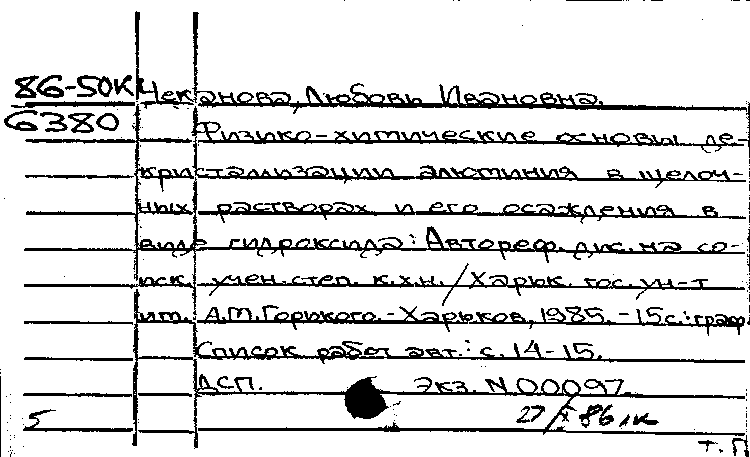 86-50К Чеканова, Любовь Ивановна.
6380 Физико-химические основы де-
кристаллизации алюминия в щелоч-
ных растворах и его осаждения в
виде гидроксида: Автореф. дис. на со-
иск. учен. степ. к.х.н. / Харьк. гос. ун-т
им. А.М. Горького. - Харьков, 1985. - 15 с.: граф.
Список работ авт.: с. 14-15.
ДСП. Экз. N 00097.
5 27/X 86 лк
т. П